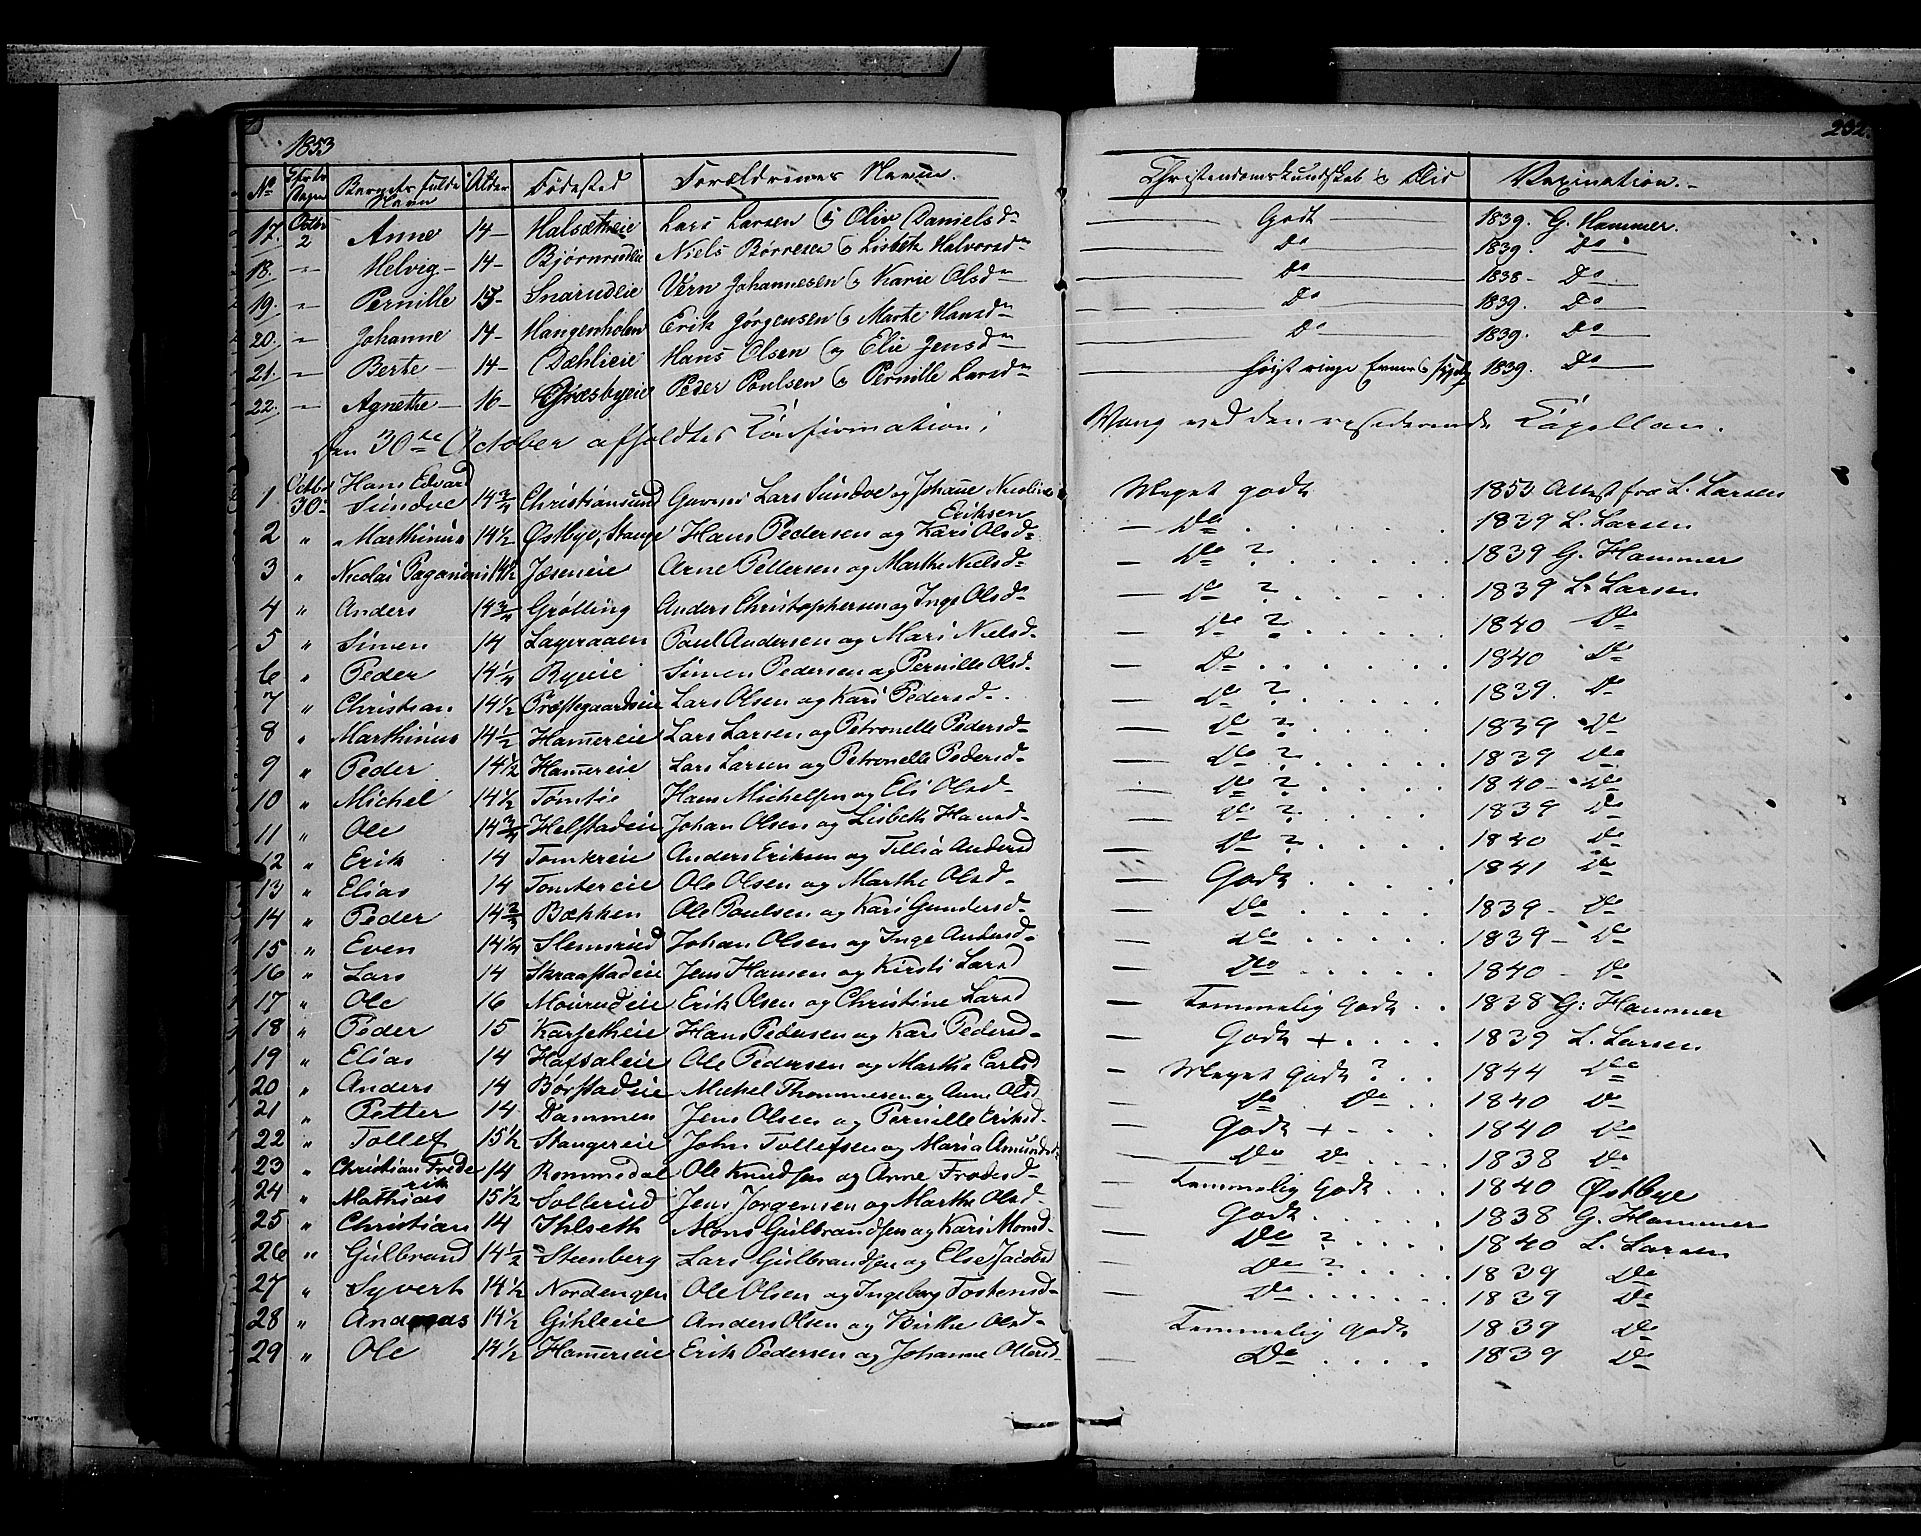 1853
232.
No Barnets fulde Navn Alder Fødested Forældrenes Navne. Christendomskundskab og Flid Vaxination.
17. Octbr 2 Anne 14 Halsætheie Lars Larsen og Oliv Danielsdr Godt 1839. G. Hammer.
18. " Helvig 14 Bjørnrudeie Niels Børresen og Lisbeth Halvorsdr Do 1839. Do
19. " Pernille 15 Snarudeie Vern Johannesen og Karie Olsdr Do 1838 Do
20. " Johanne 14 Hangerholm Erik Jørgensen og Marte Hansdr Do 1839. Do
21. " Berte 14 Dæhlieie Hans Olsen og Elie Jensdr Do 1839. Do
22. " Agnethe 16 Græsbyeie Peder Poulsen og Pernille Larsdr høist ringe Evner 1839. Do
Den 30te October afholdtes Confirmation i Vang ved den residerende Capellan.
1 Octbr 30 Hans Edvard Sundve 14 3/4 Christiansund Lars Sundve og Johanne Nicoline Eriksen Meget godt 1853 Attest fra L. Larsen
2 " Marthinus 14 1/2 Østbye, Stange Hans Pedersen og Kari Olsd. Do 1839 L. Larsen
3 " Nicolai Paganini 14 1/2 Jæseneie Arne Pettersen og Marthe Nielsd. Do ? 1839 G. Hammer
4 " Anders 14 3/4 Grølling Anders Christophersen og Inge Olsd. Do ? 1839 L. Larsen
5 " Simen 14 Lageraaen Paul Andersen og Mari Nielsd. Do ? 1840 Do
6 " Peder 14 1/4 Ryeie Simen Pedersen og Pernille Olsd. Do 1840 Do
7 " Christian 14 1/2 Præstegaardseie Lars Olsen og Kari Pedersd. Do ? 1839. Do
8 " Marthinus 14 1/2 Hamereie Lars Larsen og Petronelle Pedersd. Do ? 1839 Do
9 " Peder 14 1/2 Hamereie Lars Larsen og Petronelle Pedersd. Do ? 1839 Do
10 " Michel 14 1/2 Tomtie Hans Michelsen og Eli Olsd. Do ? 1840 Do
11 " Ole 14 3/4 Helstadeie Johan Olsen og Lisbeth Hansd. Do ? 1839 Do
12 " Erik 14 Tomtereie Anders Eriksen og Tillia Andersd Do ? 1840 Do
13 " Elias 14 Tomtereie Ole Olsen og Marthe Olsd. Godt 1841 Do
14 " Peder 14 3/4 Bækken Ole Paulsen og Kari Gundersd. Do 1839 Do
15 " Even 14 1/4 Slemsrud Johan Olsen og Inge Andersd. Do 1839 Do
16 " Lars 14 Skraastadeie Jens Hansen og Kirsti Larsd Do 1840 Do
17 " Ole 16 Mourudeie Erik Olsen og Christine Larsd Temmelig godt 1838 G. Hammer
18 " Peder 15 Karsetheie Hans Pedersen og Kari Pedersd. Godt + 1839 L. Larsen
19 " Elias 14 Hafsaleie Ole Pedersen og Marthe Carlsd Meget Godt ? 1844 Do
20 " Anders 14 Børstadeie Michel Thommesen og Anne Olsd Do Do 1840 Do
21 " Petter 14 Dammen Jens Olsen og Pernille Eriksd. Godt + 1840 Do
22 " Tollef 15 1/2 Stangereie John Tollefsen og Maria Amundsd. Do Do 1838 Do
23 " Christian Frederik 14 Romsdal Ole Knudsen og Anne Frodesd. Temmelig Godt 1840 Østbye
24 " Mathias 15 1/2 Sollerud Jens Jørgensen og Marthe Olsd. Godt 1838 G. Hammer
25 " Christian 14 Ihlseth Mons Gulbrandsen og Kari Monsd. Do ? 1840 L. Larsen
26 " Gulbrand 14 1/2 Stenberg Lars Gulbrandsen og Else Jacobsd Do ? 1839 Do
27 " Syvert 14 1/2 Nordengen Ole Olsen og Ingeborg Tostensd. Do 1839 Do
28 " Andreas 14 1/2 Gihleeie Anders Olsen og Birthe Olsd. Temmelig godt 1839 Do
29 " Ole 14 1/2 Hamereie Erik Pedersen og Johanne Olsd. Do 1839 Do